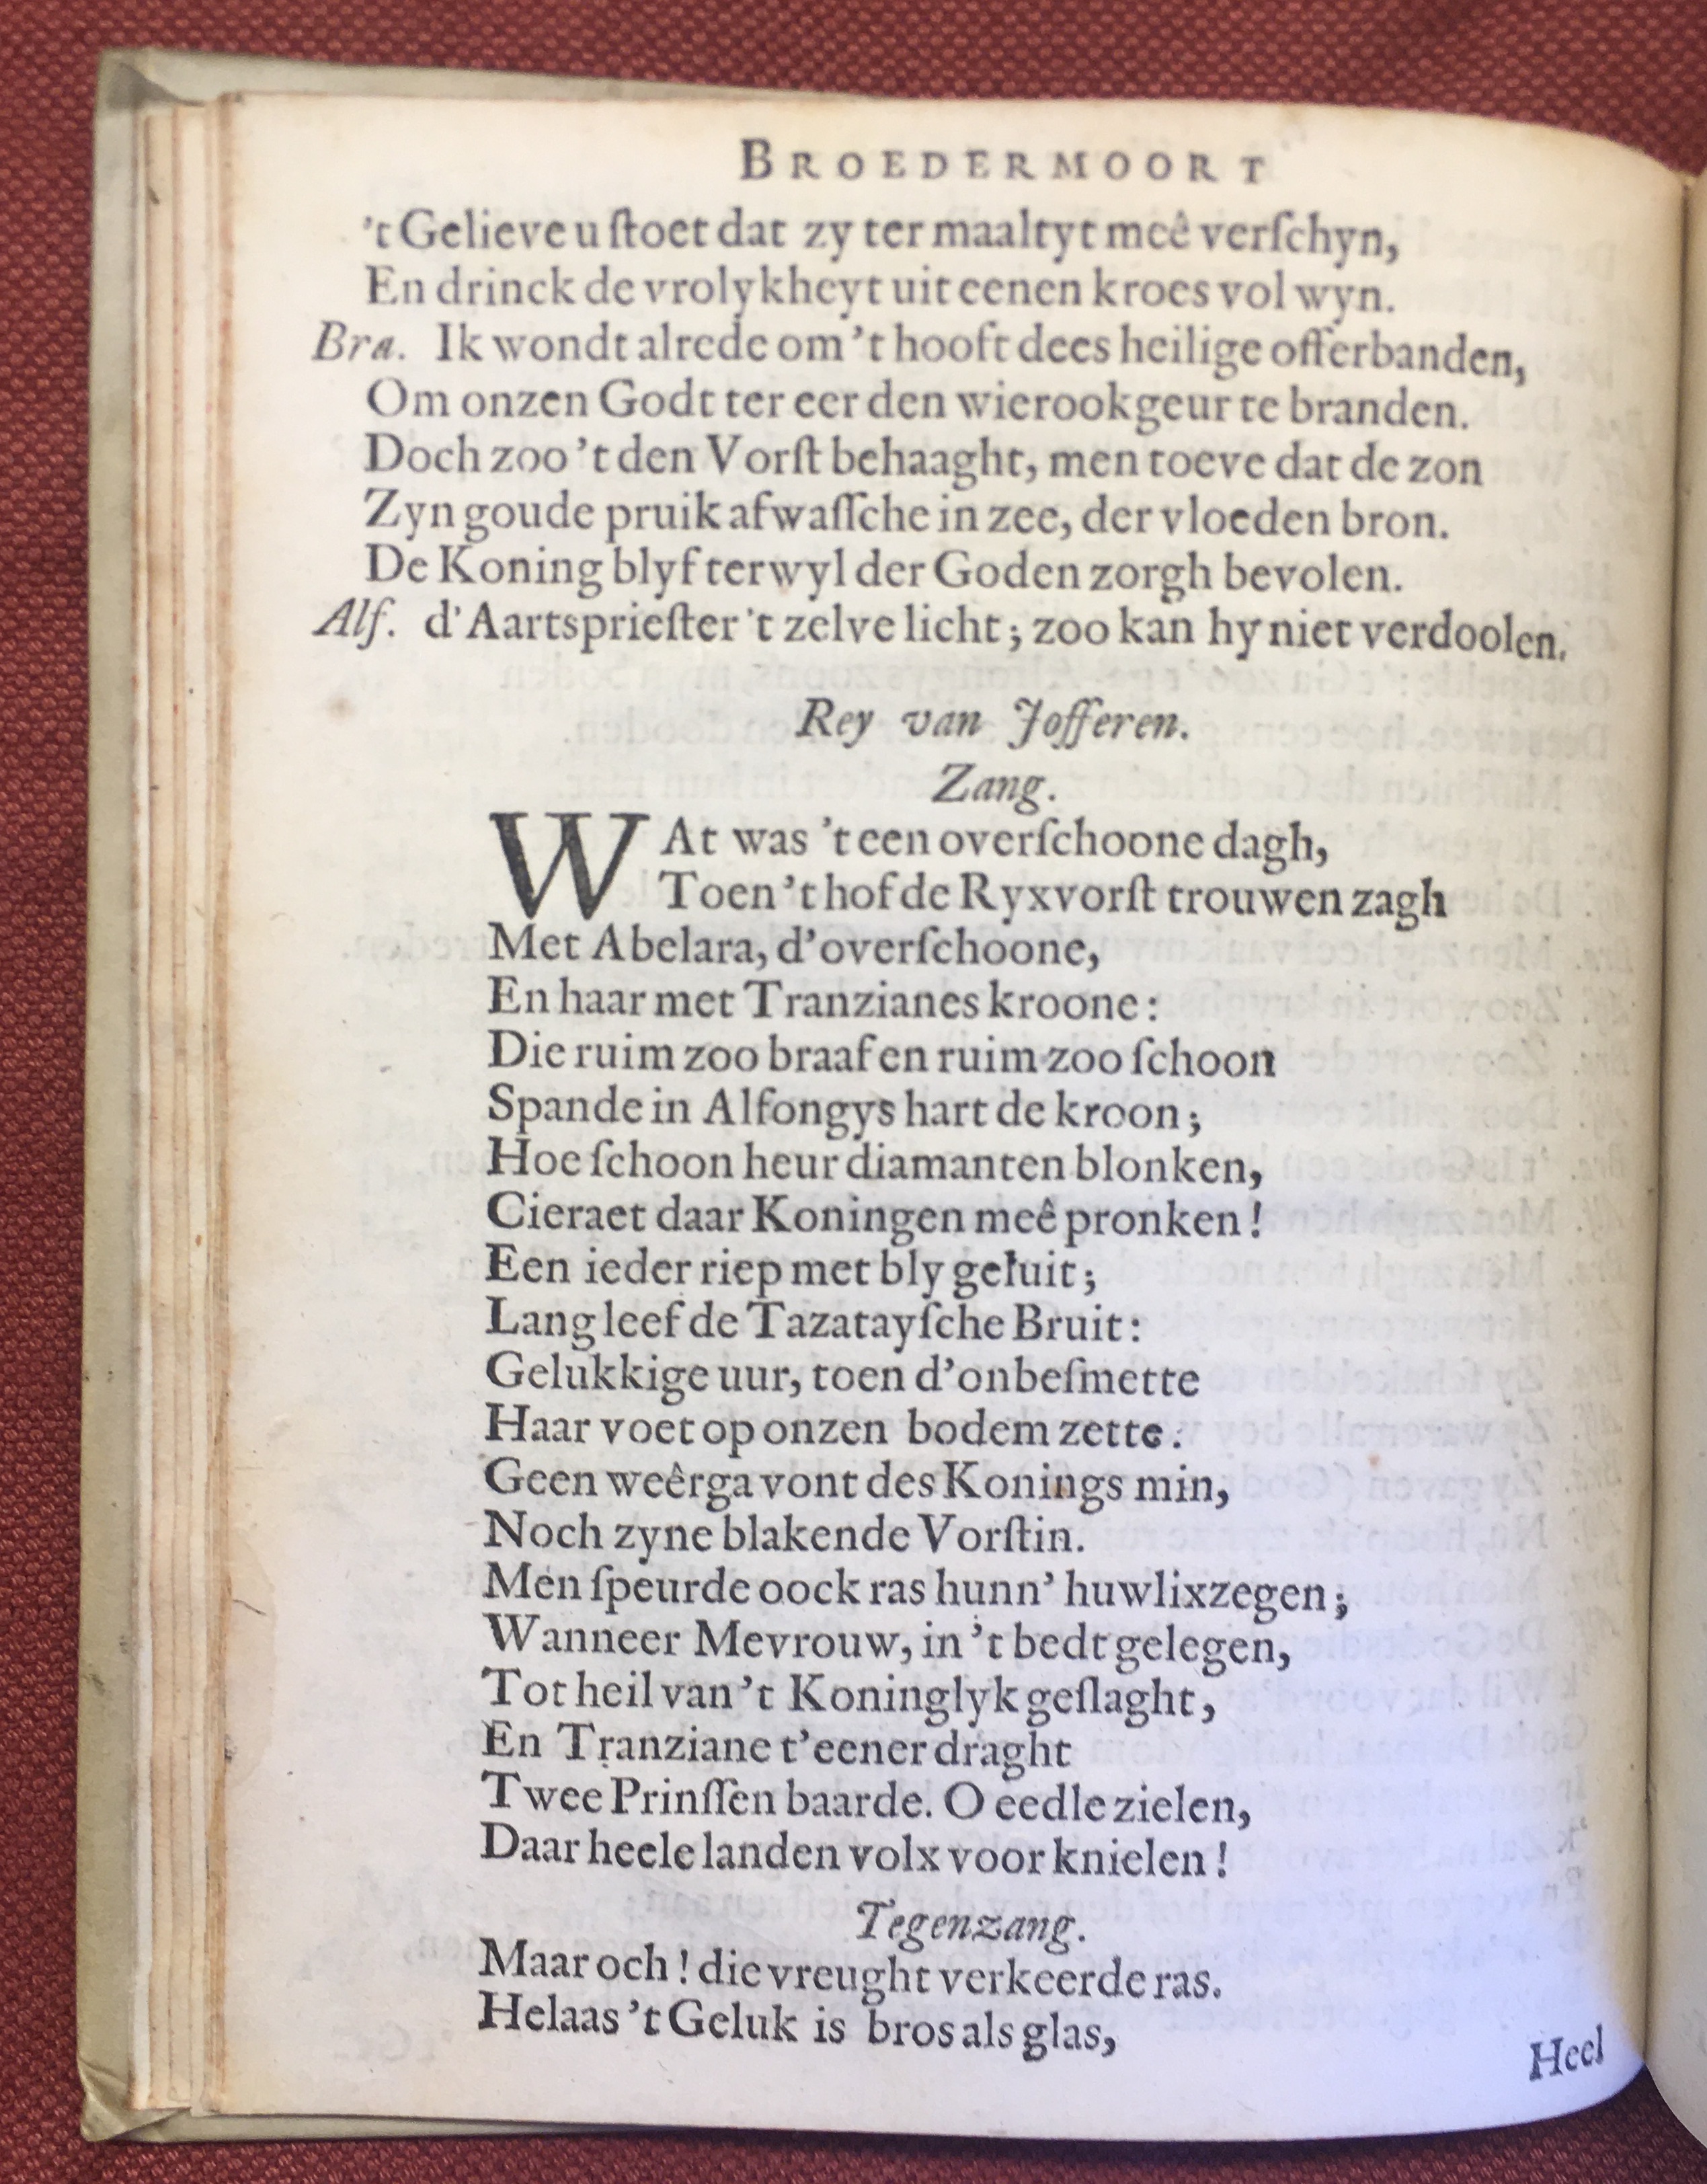 BROEDERMOORT
't Gelieve u ſtoet dat zy ter maaltyt meê verſchyn,
En drinck de vrolykheyt uit eenen kroes vol wyn.
Bra. Ik wondt alrede om 't hooft dees heilige offerbanden,
Om onzen Godt ter eer den wierookgeur te branden.
Doch zoo 't den Vorſt behaaght, men toeve dat de zon
Zyn goude pruik afwaſſche in zee, der vloeden bron.
De Koning blyf terwyl der Goden zorgh bevolen.
Alf. d'Aartsprieſter 't zelve licht; zoo kan hy niet verdoolen.
Rey van Jofferen.
Zang.
WAt was 't een overſchoone dagh,
Toen 't hof de Ryxvorſt trouwen zagh
Met Abelara, d'overſchoone,
En haar met Tranzianes kroone:
Die ruim zoo braaf en ruim zoo ſchoon
Spande in Alfongys hart de kroon;
Hoe ſchoon heur diamanten blonken,
Cieraet daar Koningen meê pronken!
Een ieder riep met bly geluit;
Lang leef de Tazatayſche Bruit:
Gelukkige uur, toen d'onbeſmette
Haar voet op onzen bodem zette.
Geen weêrga vont des Konings min,
Noch zyne blakende Vorſtin.
Men ſpeurde oock ras hunn' huwlixzegen;
Wanneer Mevrouw, in 't bedt gelegen,
Tot heil van 't Koninglyk geſlaght,
En Tranziane t'eener draght
Twee Prinſſen baarde. O eedle zielen,
Daar heele landen volx voor knielen!
Tegenzang.
Maar och! die vreught verkeerde ras.
Helaas 't Geluk is bros als glas,
Heel